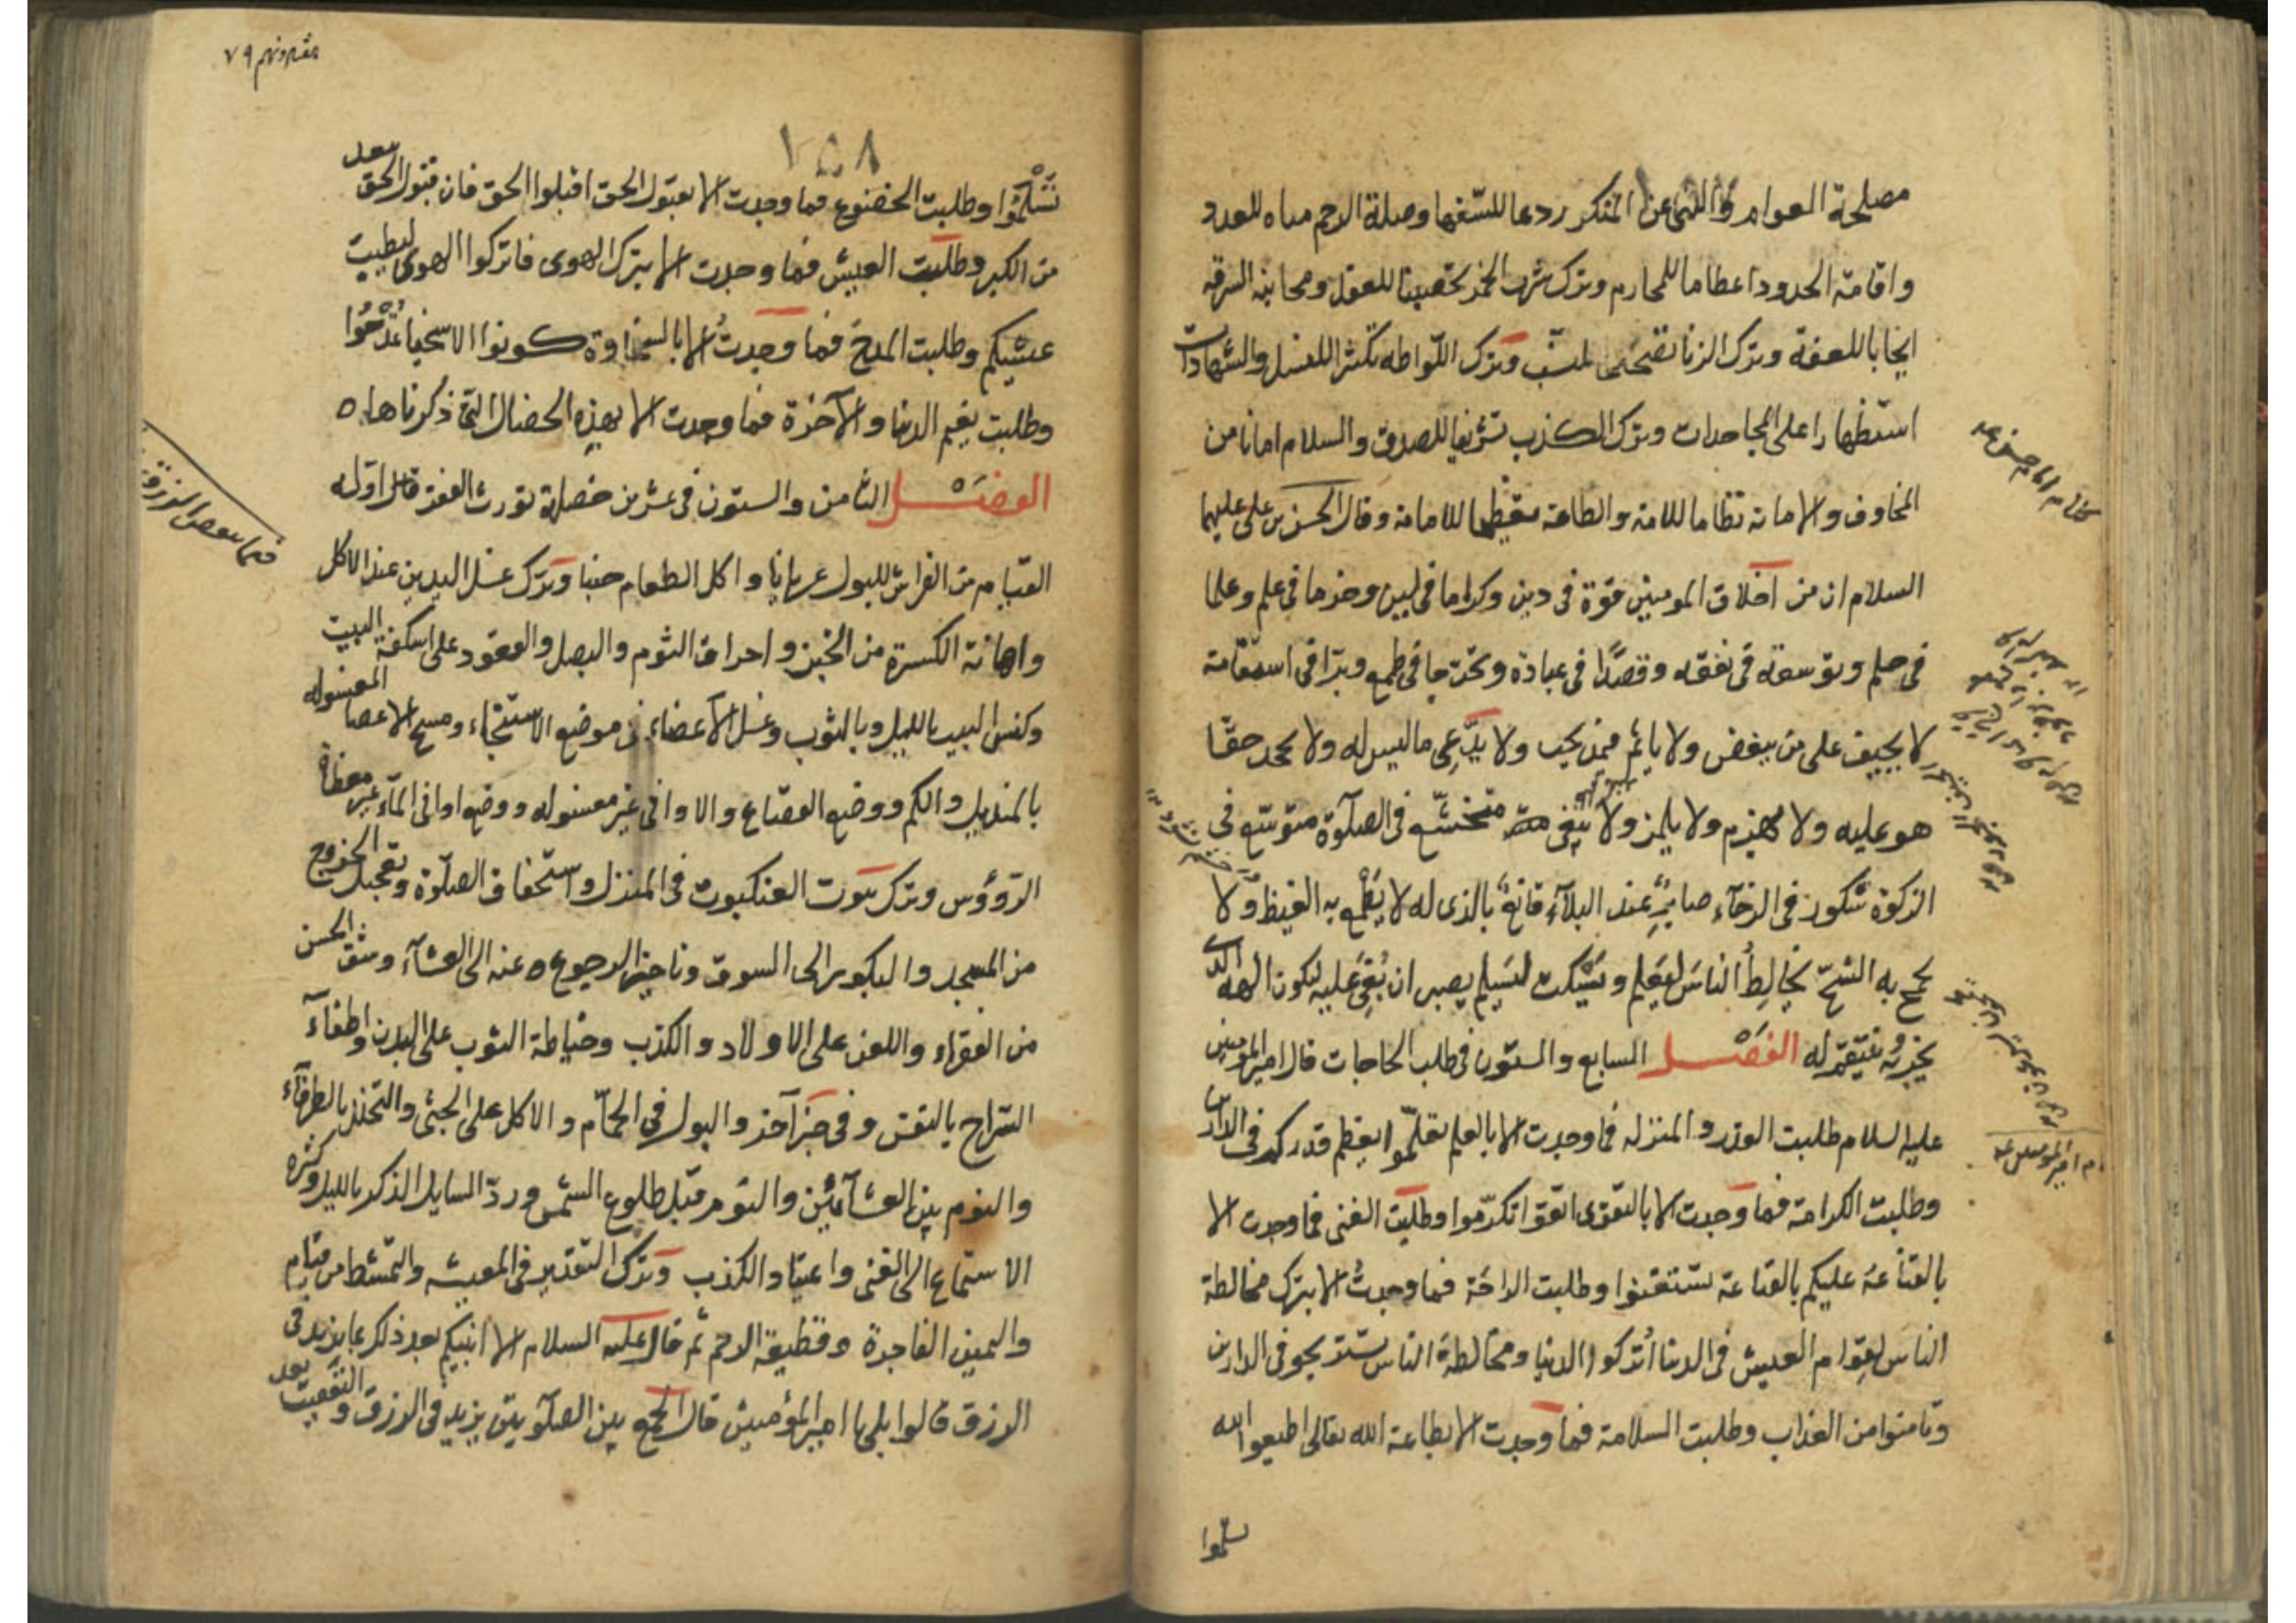 مصلحة العوام والنهى عن المنكر ردعا للسفها وصلة الرحم مناه للعدد
واقامة الحدود اعظاما للمحارم وترك شرب الخمر تحصينا للعقل ومجانبة السرقه
ايجابا للعفة وترك الزنا للنسب وترك اللواطه تكثرا للنسل والشهادات
استظهارا على المجاحدات وترك الكذب تشريفا للصدق والسلام امانا من
المخاوف والامانة نظاما للامة والطاعة تعظيما للامامة وقال الحسن بن على عليهما
السلام ان من اخلاق المومنين قوة فى دين وكراما فى لين وحزما فى علم وعلما
فى حلم وتوسعة فى نفقه وقصدا فى عبادة وتحرجا فى طمع وبرا فى استقامة
لا يحيف على من يبغض ولا ياثم فيمن يحب ولا يدعى ما ليس له ولا يجحد حقا
هو عليه ولا يهمز ولا يلمز ولا يبغى متخشع فى الصلوة متوسع فى
الزكوة شكور فى الرخاء صابر عند البلاء قانع بالذى له لا يطمح به الغيظ ولا
يجمح به الشح يخالط الناس ليعلم ويسكت ليسلم يصبر ان بغى عليه ليكون الهه الذى
يجزيه ينتقم له الفصل السابع والستون فى طلب الحاجات قال امير المومنين
عليه السلام طلبت القدر والمنزله فما وجدت الا بالعلم تعلموا يعظم قدركم فى الدارين
وطلبت الكرامة فما وجدت الا بالتقوى اتقوا تكرموا وطلبت الغنى فما وجدت الا
بالقناعة عليكم بالقناعة تستغنوا وطلبت الراحة فما وجدت الا بترك مخالطة
الناس لقوام العيش فى الدنا اتركوا الدنيا ومخالطة الناس تستريحوا فى الدارين
وتامنوا من العذاب وطلبت السلامة فما وجدت الا بطاعة الله تعالى اطيعوا الله
تسلموا
٧٩
١٥٨
تَسْلَمُوا وطلبت الخضوع فما وجدت الا بقبول الحق اقبلوا الحق فان قبول الحق يبعد
من الكبر وطلبت العيش فما وجدت الا بترك الهوى فاتركوا الهوى ليطيب
عيشكم وطلبت المدح فما وجدت الا بالسخاوة كونوا الاسخيا تمدحوا
وطلبت نعيم الدنيا والآخرة فما وجدت الا بهذه الخصال التى ذكرناها ٥
الفصل الثامن والستون فى عشرين خصلة تورث الفقر قال اوله
القيام من الفراش للبول عريانا واكل الطعام جنبا وترك غسل اليدين عند الاكل
واهانة الكسرة من الخبز واحراق الثوم والبصل والقعود على اسكفة البيت
وكنس البيت بالليل وبالثوب وغسل الاعضاء فى موضع الاستنجاء ومسح الاعضا المغسوله
بالمنديل والكم ووضع القصاع والاوانى غير مغسوله ووضع اوانى الماء غير مغطاة
الرؤوس وترك بيوت العنكبوت فى المنزل واستخفاف الصلوة وتعجيل الخروج
من المسجد والبكور الى السوق وتاخير الرجوع عنه الى العشاء وشق الخبز
من الفقراء واللعن على الاولاد والكذب وخياطة الثوب على البدن واطفاء
السراج بالنفس وفى خبر آخر والبول فى الحمام والاكل على الجثى والتخلل بالطرفاء
والنوم بين العشائين والنوم قبل طلوع الشمس ورد السايل الذكر بالليل وكثرة
الاستماع الى الغنى واعتياد الكذب وترك التقدير فى المعيشه والتمشط من قيام
واليمين الفاجرة وقطيعة الرحم ثم قال عليه السلام الا انبيكم بعد ذلك بما يزيد فى
الرزق قالوا بلى يا امير المؤمنين قال الجمع بين الصلوتين يزيد فى الرزق والتعقيب بعد